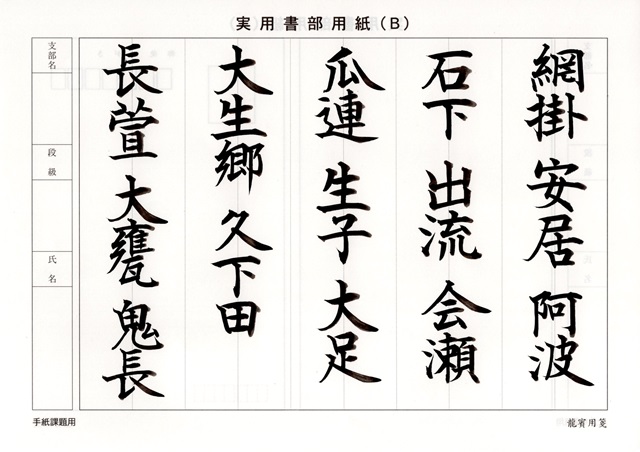 実用書部用紙(B)
網掛 安居 阿波
石下 出流 会瀬
瓜連 生子 大足
大生郷 久下田
長萱 大甕 鬼長
支部名
段級
氏名
手紙課題用
龍賓用箋